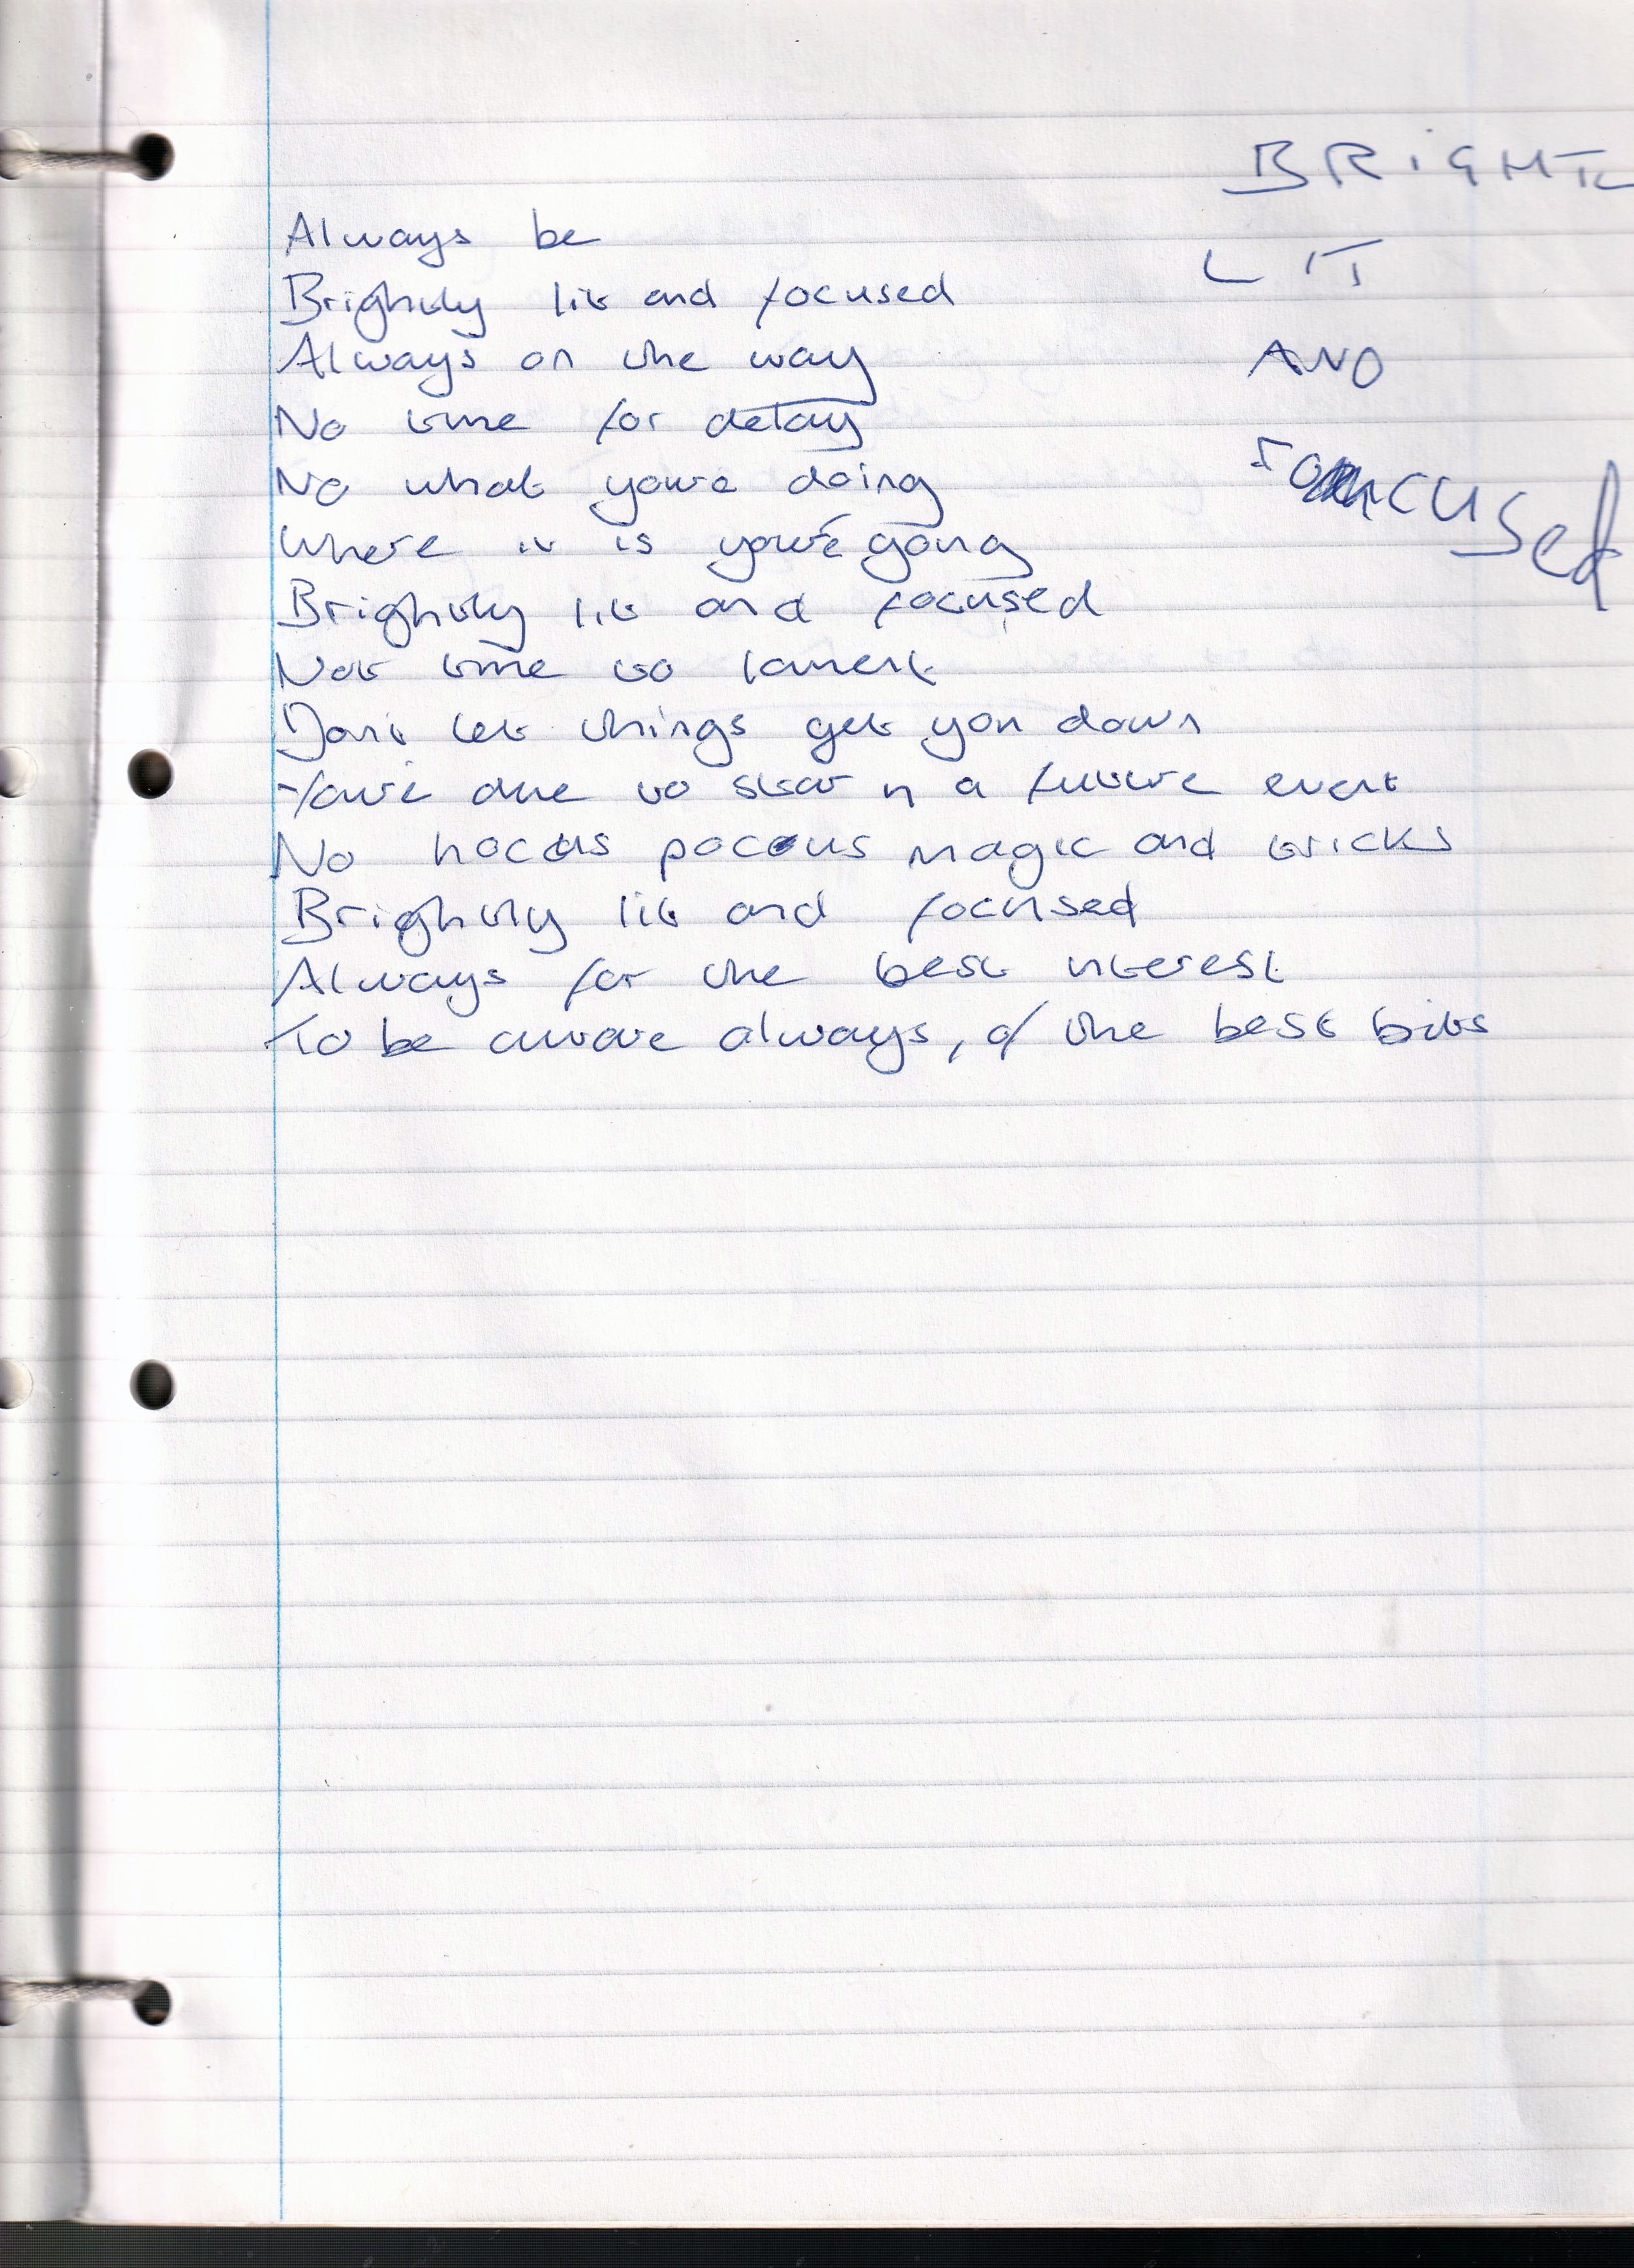 BRIGHTL
LIT
AND
FOCUSED
Always be
Brightly lit and focused
Always on the way
No time for delay
No what you're doing
Where it is you're going
Brightly lit and focused
Not time to lament
Don't let things get you down
You're due to star in a future event
No hocus pocus magic and tricks
Brightly lit and focused
Always for the best interest
To be aware always, of the best bits